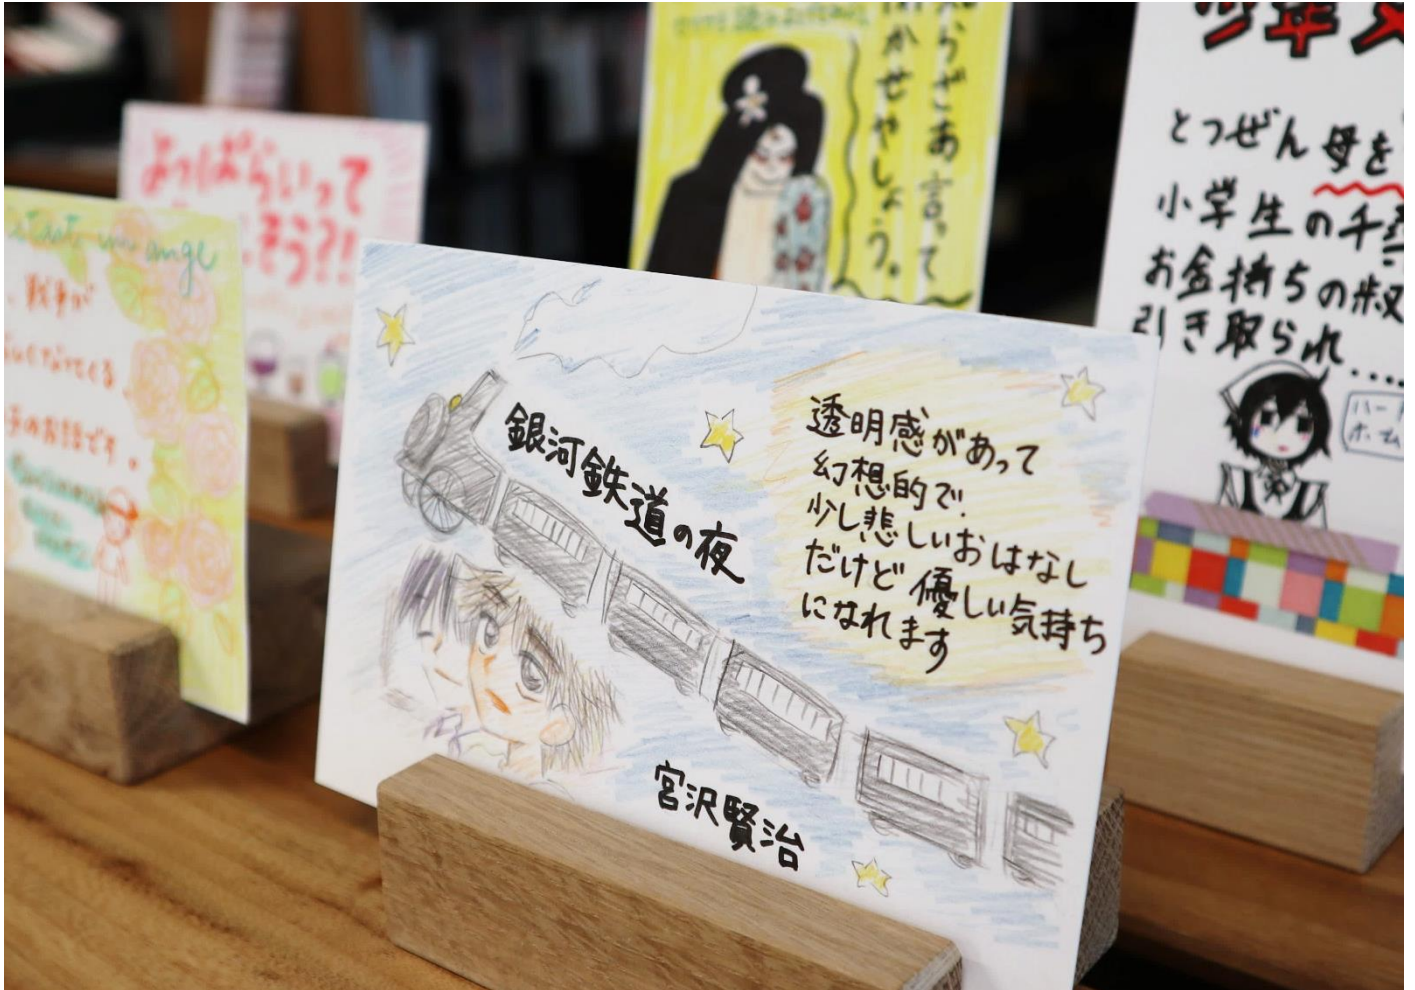 銀河鉄道の夜
透明感があって
幻想的で、
少し悲しいおはなし
だけど優しい気持ち
になれます
宮沢賢治
よっぱらいって
そう?!
un ange
戦争が
くなってくる
子のお話です。
らざあ言って
かせやしょう。
少年
とつぜん母を
小学生の千
お金持ちの叔
引き取られ.....
ハート
ホーム